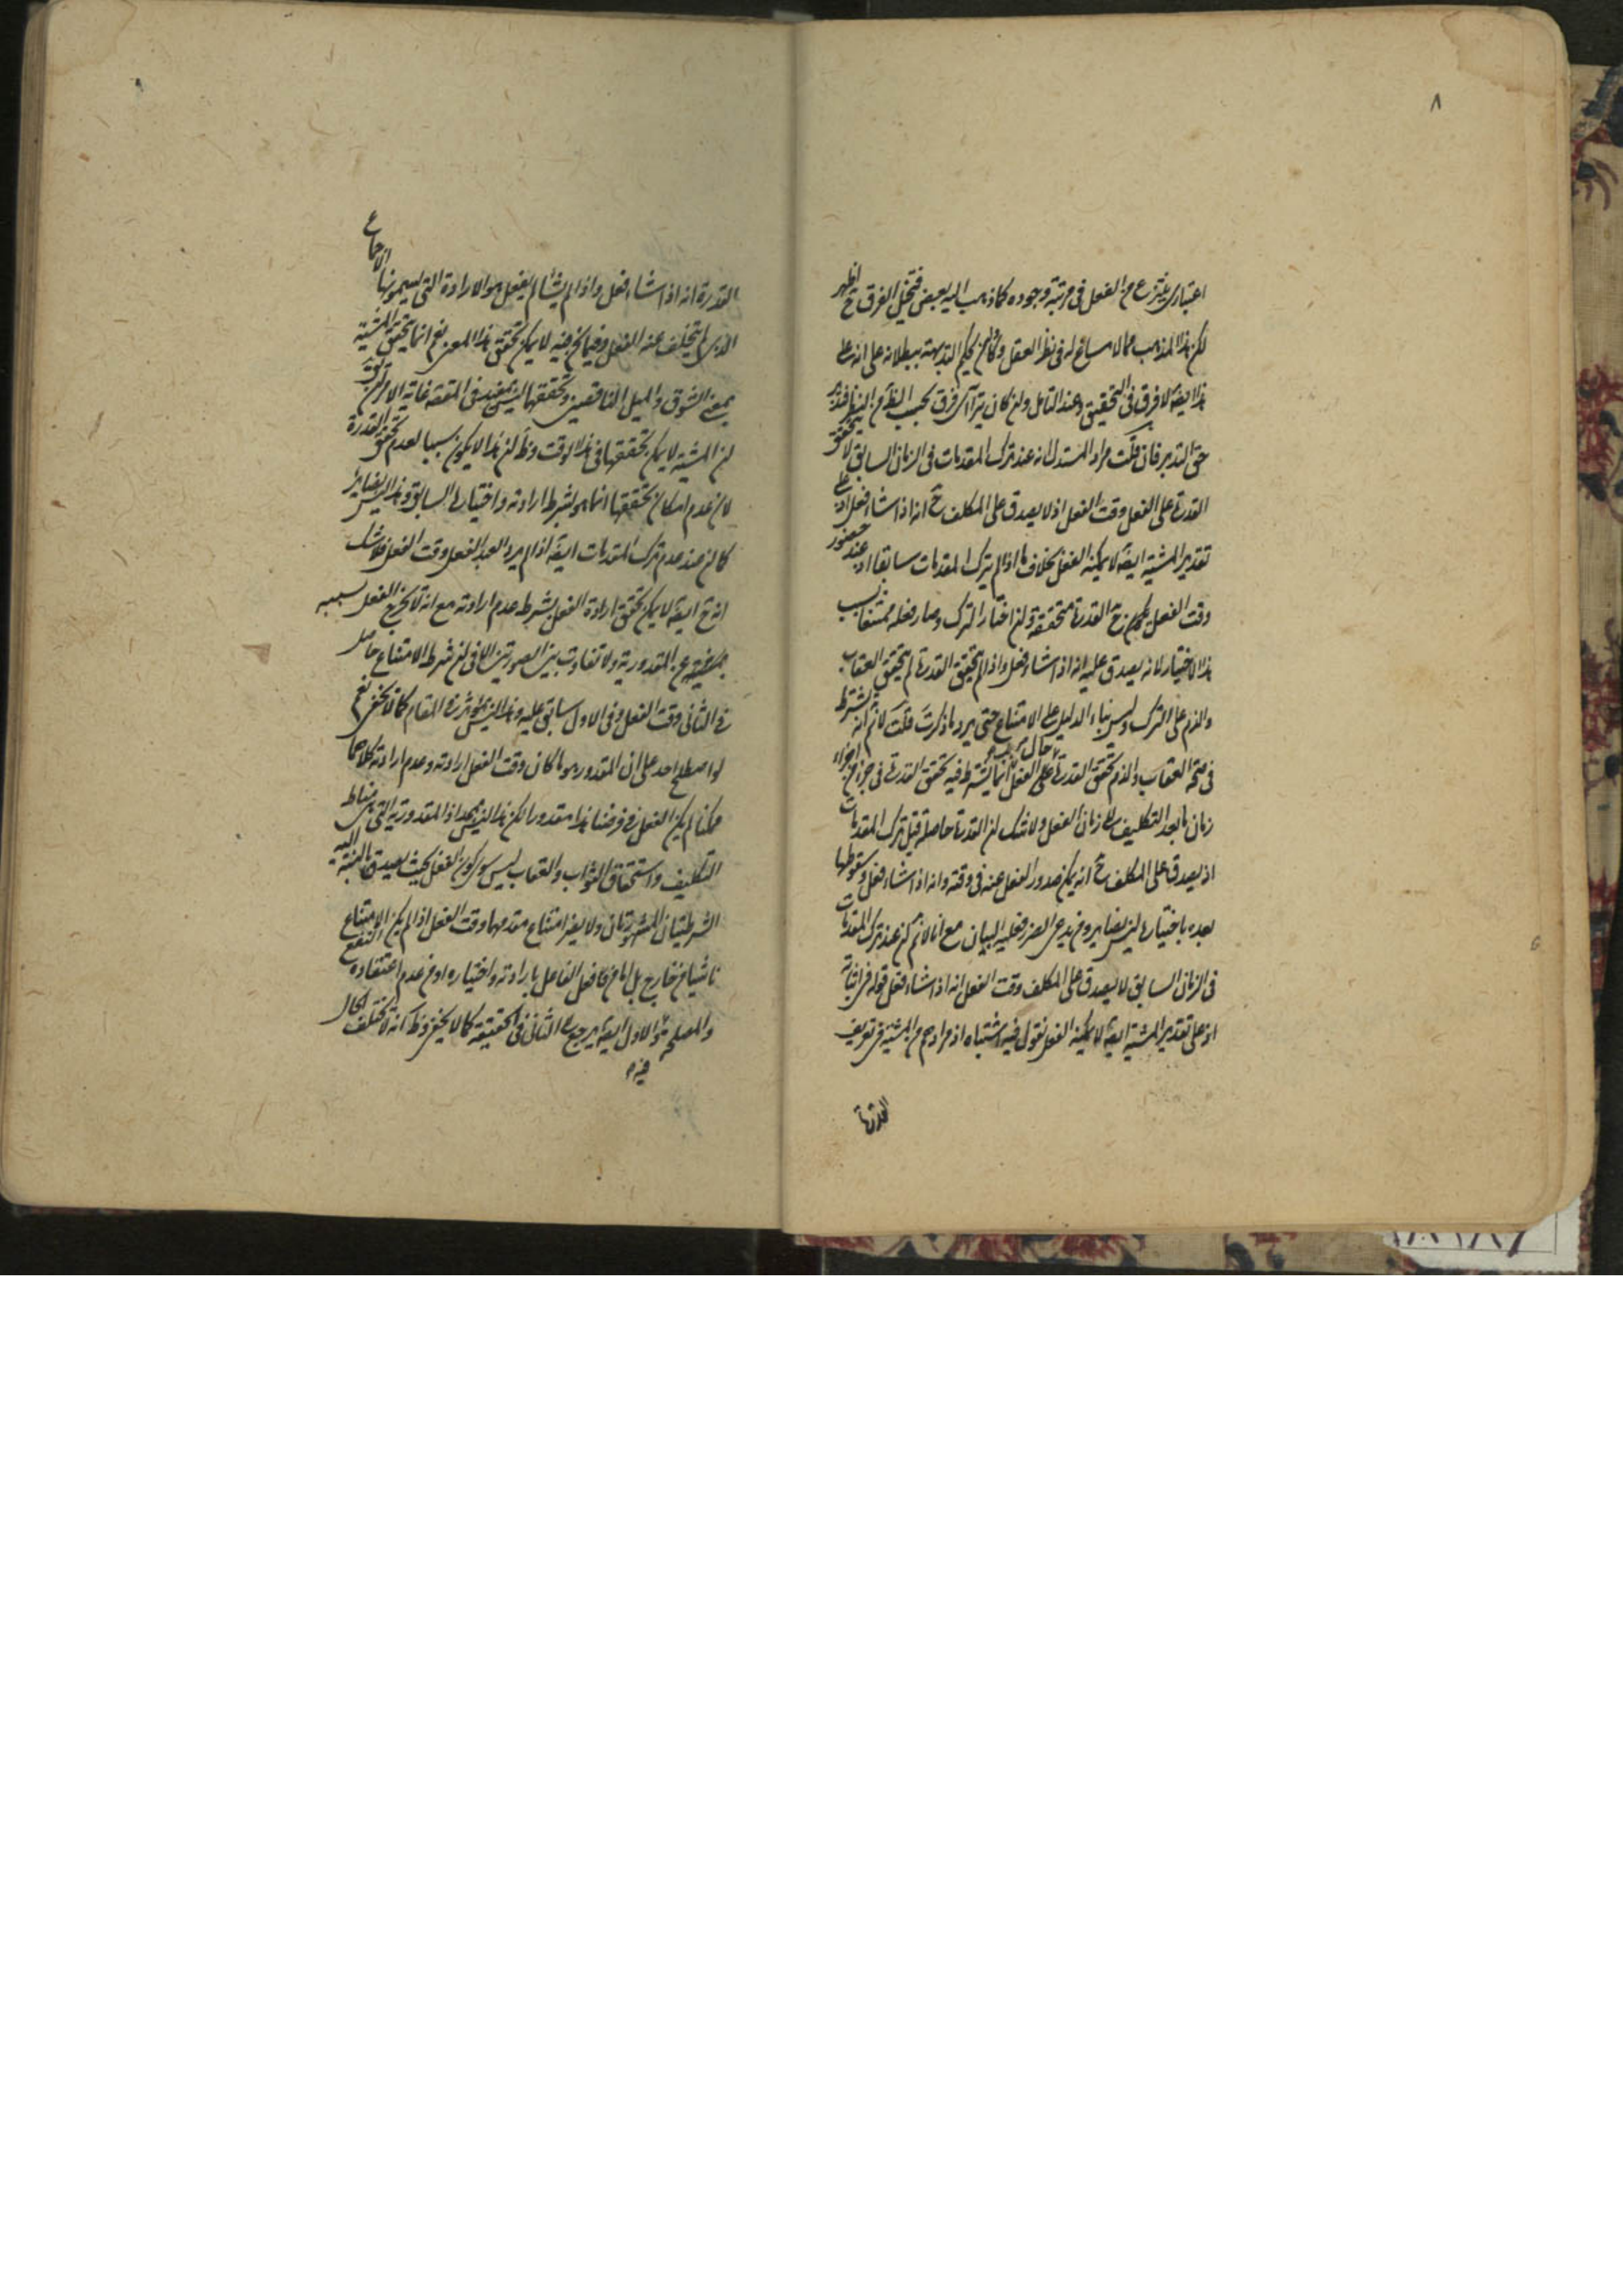 ٨
اعتباري ينتزع من الفعل في مرتبة وجوده كما ذهب اليه بعض فتخيل الفرق ح اظهر
لكن هذا المذهب مما لا مساغ له في نظر العقل وكان يحكم البديهة ببطلانه على انه على
هذا ايضا لا فرق في التحقيق وعند التامل وان كان يترآى فرق بحسب الظ من النظر فتدبر
حق التدبر فان قلت مراد المستدل انه عند ترك المقدمات في الزمان السابق لا يتحقق
القدرة على الفعل وقت الفعل اذ لا يصدق على المكلف ح انه اذا شاء فعل اذ على
تقدير المشية ايضا لا يمكنه الفعل بخلاف ما اذا لم يترك المقدمات سابقا اذ عند حضور
وقت الفعل ح القدرة متحققة وان اختار الترك وصار فعله ممتنعا بسبب
هذا الاختيار لانه يصدق عليه انه اذا شاء فعل واذا لم يتحقق القدرة لم يتحقق العقاب
والذم على الترك وليس بناء الدليل على الامتناع حتى يرد ما ذكرت قلت لا نم انه يشترط
في صحة العقاب والذم تحقق القدرة على الفعل حال انما يشترط فيه تحقق القدرة في جزء من اجزاء
زمان ما بعد التكليف الى زمان الفعل ولا شك ان القدرة حاصلة قبل ترك المقدمات
اذ يصدق على المكلف ح انه يمكن صدور الفعل عنه في وقته وانه اذا شاء فعل وسقوطها
بعده باختياره ليس بضاير ومن يدعي الضرر فعليه البيان مع انا لا نم ان عند ترك المقدمات
في الزمان السابق لا يصدق على المكلف وقت الفعل انه اذا شاء فعل قوله في اثباته
اذ على تقدير المشية ايضا لا يمكنه الفعل نقول فيه اشتباه اذ مرادهم من المشية في تعريف
القدرة
القدرة انه اذا شاء فعل واذا لم يشأ لم يفعل هو الارادة التي يسمونها الاجماع
الذي لم يتخلف عنه الفعل وفيما نحن فيه لا يمكن تحقق هذا المعنى نعم انما يتحقق المشية
بمعنى الشوق والميل الناقصين وتحققها ليس بمفيد في المقصد غاية الامر ان يق
ان المشية لا يمكن تحققها في هذا الوقت وظ ان هذا لا يكون سببا لعدم تحقق القدرة
لان عدم امكان تحققها انما هو بشرط ارادته واختياره السابق وهذا ليس بضاير
كما ان عند عدم ترك المقدمات ايضا اذا لم يرد العبد الفعل وقت الفعل فلا شك
انه ح ايضا لا يمكن تحقق ارادة الفعل بشرط عدم ارادته مع انه لا يخرج الفعل بسببه
عن المقدورية ولا تفاوت بين الصورتين الا في ان شرط الامتناع حاصل
في الثاني وقت الفعل وفي الاول سابق عليه وهذا ليس بمؤثر في المقام كما لا يخفى نعم
لو اصطلح احد على ان المقدور هو ما كان وقت الفعل ارادته وعدم ارادته كلاهما
ممكنا لم يكن الفعل في فرضنا هذا مقدورا لكن هذا ليس بمجد اذ المقدورية التي هي مناط
التكليف واستحقاق الثواب والعقاب ليس سوى كون الفعل بحيث يصدق بالنسبة اليه
الشرطيتان المشهورتان ولا يضر امتناع مقدمهما وقت الفعل اذا لم يكن الامتناع
ناشيا من خارج بل اما من فاعل الفاعل بارادته واختياره او من عدم اعتقاده النفع
والمصلحة والاول ايضا يرجع الى الثاني في الحقيقة كما لا يخفى وظ انه لا تختلف الحال
فيه